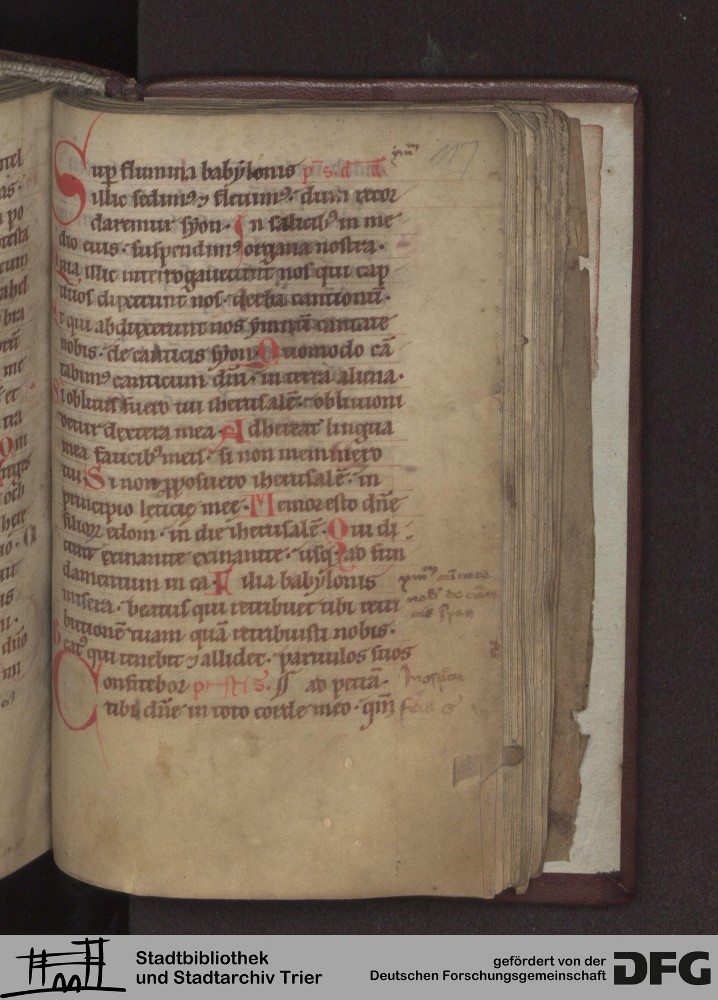 Sup flumina babẏlonis p̄s. d̄d̄.
illic sedim᷒ ⁊ fleuim᷒. dum recor
daremur sẏon. In salicib᷒ in me
dio eius. suspendim᷒ organa nostra.
Quia illic interrogauerunt nos qui cap
tiuos duxerunt nos. uerba cantionū.
Et qui abduxerunt nos ẏmnū cantate
nobis. de canticis sẏon. Quomodo cā
tabim᷒ canticum dn̄i. in terra aliena.
Si oblitus fuero tui iherusalē. obliuioni
detur dextera mea. Adhereat lingua
mea faucib᷒ meis. si non meminero
tui. Si non ꝓposuero iherusalē. in
principio leticię mee. Memor esto dn̄e
filioꝝ edom. in die iherusalē. Qui di
cunt exinanite exinanite. usq; ad fun
damentum in ea. Filia babẏlonis
misera. beatus qui retribuet tibi retri
butionē tuam quā retribuisti nobis.
Beat᷒ qui tenebit ⁊ allidet. paruulos suos
Confitebor ad petrā.
tibi dn̄e in toto corde meo. qm̄
117
Stadtbibliothek
und Stadtarchiv Trier
gefördert von der
Deutschen Forschungsgemeinschaft
DFG